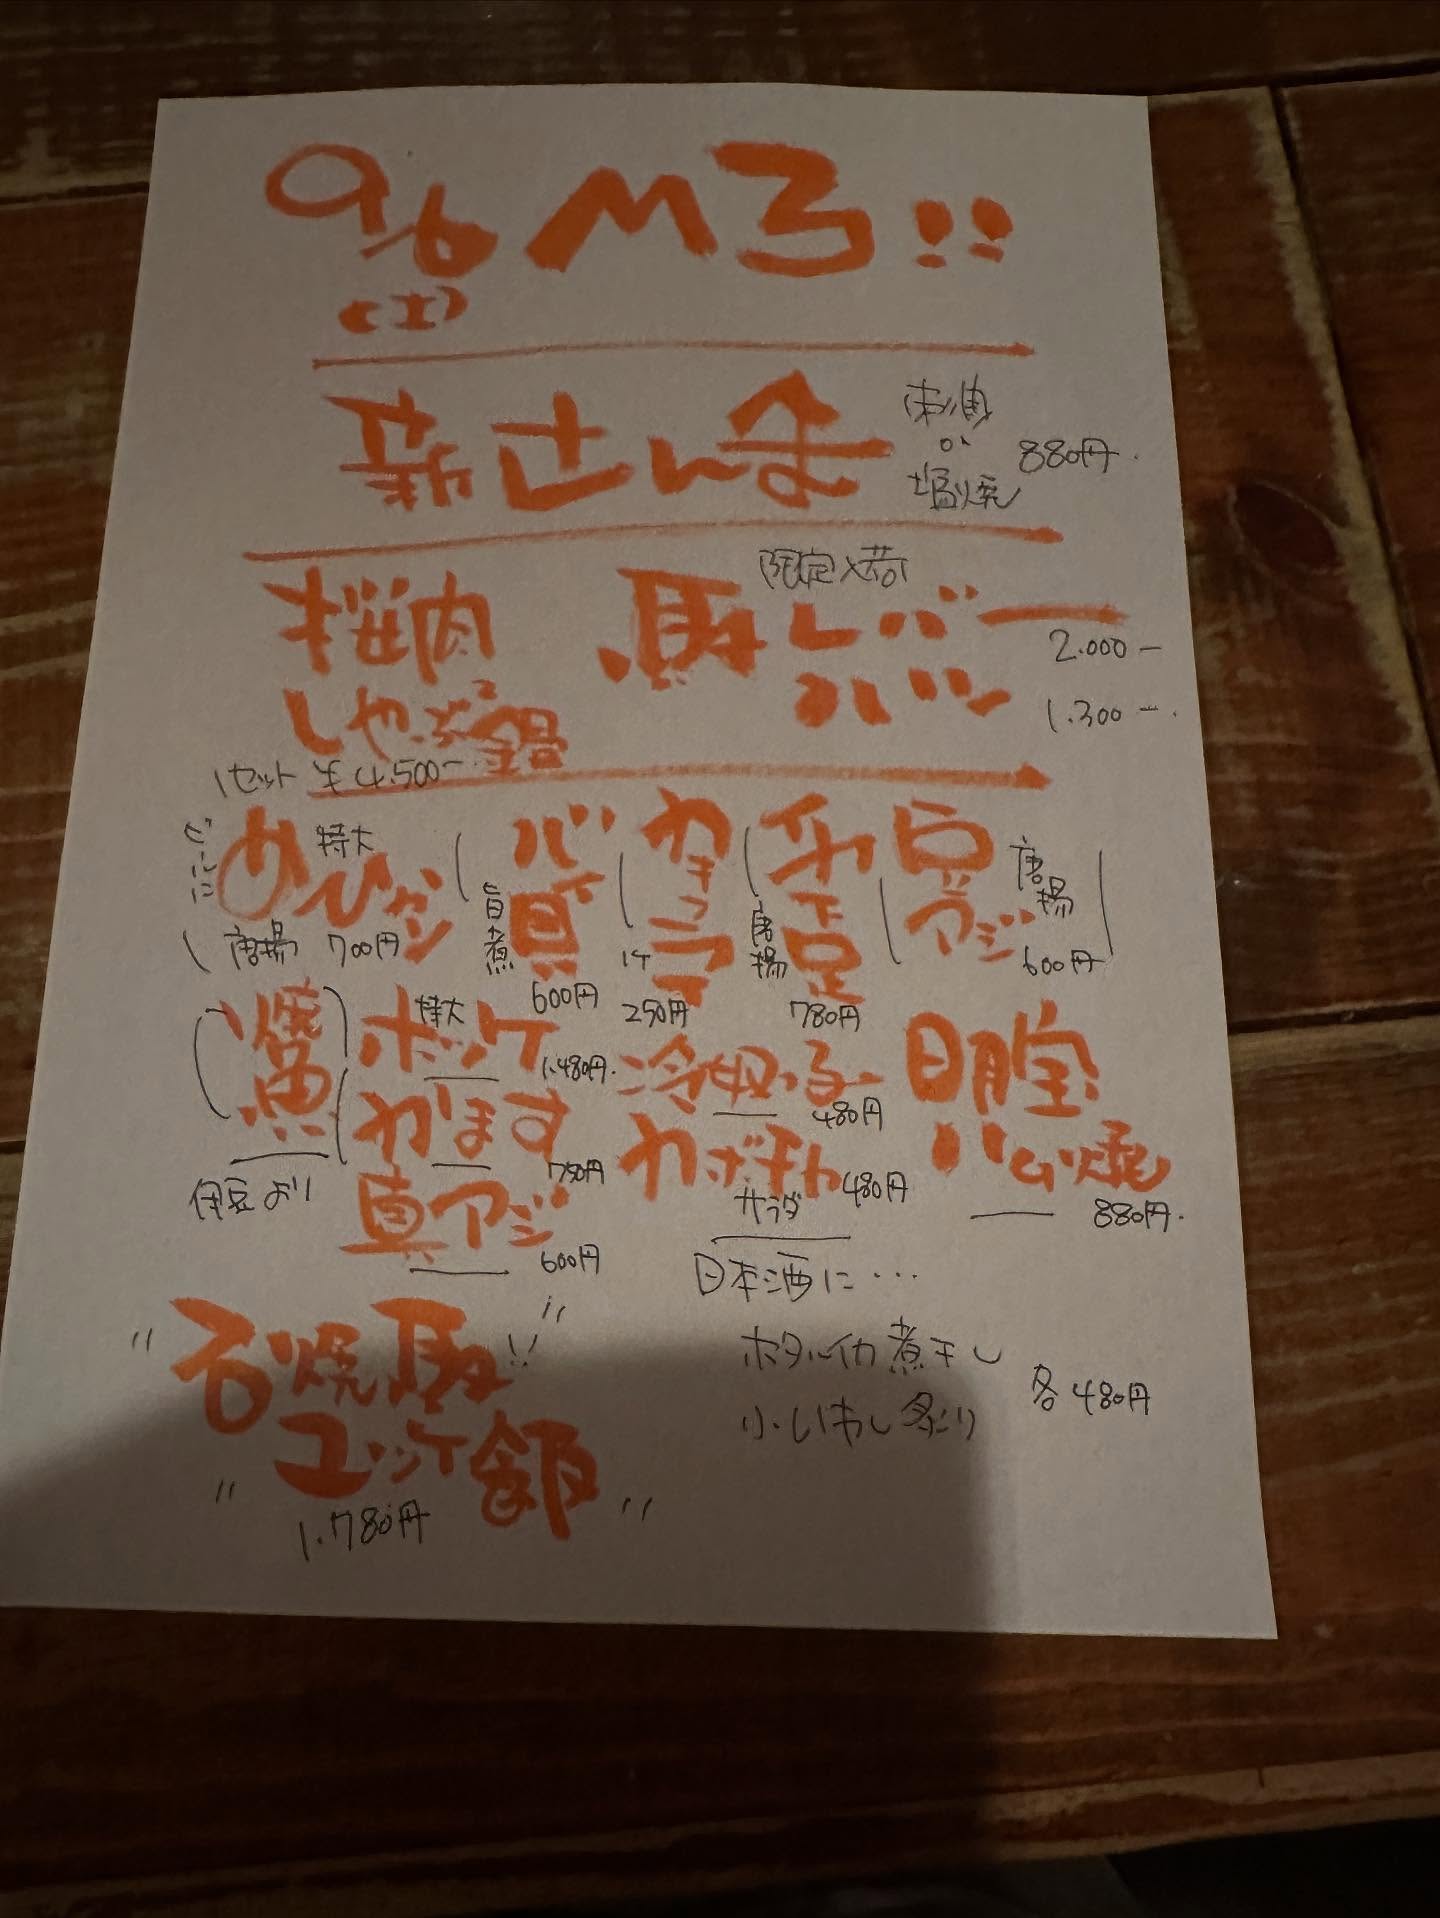 9/6
(土)
新さんま 刺身 か 塩焼 880円
限定入荷
桜肉 しゃぶ2鍋
1セット ¥4.500-
馬 レバー 2.000-
ハツ 1.300-
特大 めひかり 唐揚 700円
バイ貝 旨煮 600円
カキフライ 1ケ 250円
イカ下足 唐揚 780円
豆アジ 唐揚 600円
焼魚 伊豆より
特大 ホッケ 1.480円
かます 780円
真アジ 600円
冷奴 480円
カボチャ サラダ 480円
明宝 ハム焼 880円
"石焼馬!! "
"ユッケ飯"
1.780円
日本酒に…
ホタルイカ煮干し
小いわし炙り
各480円